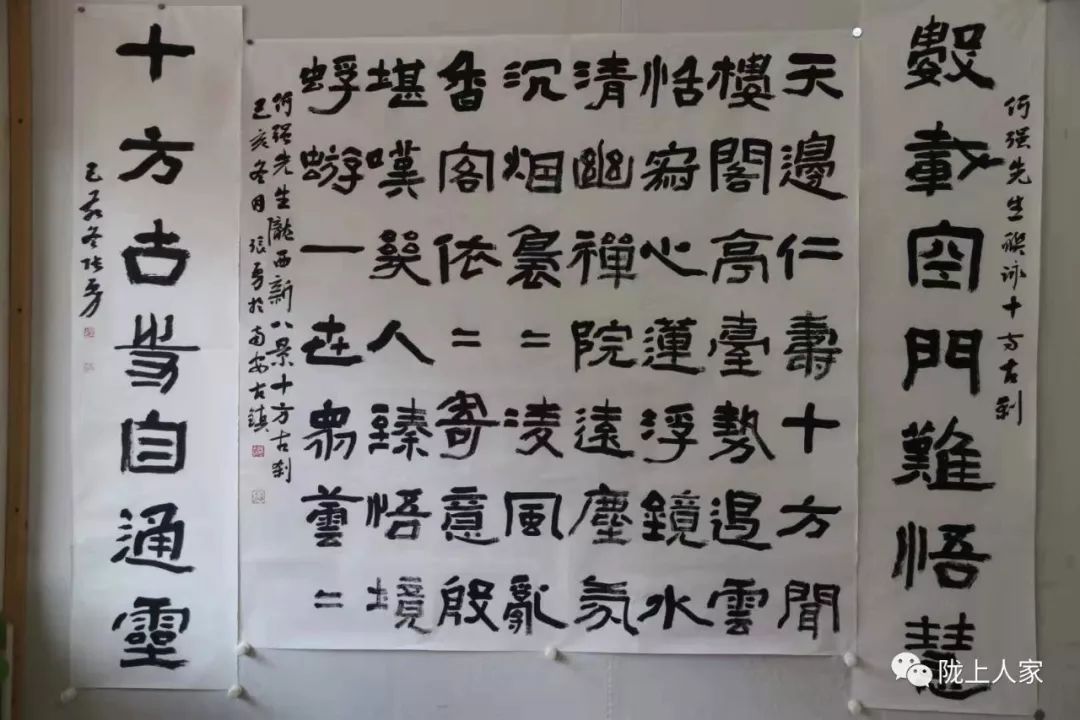 何强先生咏十方古刹
數載空門難悟慧
天邊仁壽十方聞
樓閣亭臺勢遏雲
恬寂心蓮浮鏡水
清幽禪院遠塵氛
沉烟裊=淩風亂
香客依=寄意殷
堪嘆人臻悟境
蜉蝣一世衆蕓=
何强先生隴西新八景十方古刹
己亥冬月張勇於南安古鎮
十方古寺自通靈
己亥冬張勇
陇上人家